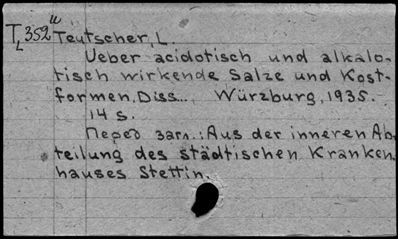 TL 352" Teutscher, L.
Ueber acidotisch und alkalo-
tisch wirkende Salze und Kost-
formen. Diss... Würzburg, 1935.
14 s.
Перед загл.: Aus der inneren Ab-
teilung des städtischen Kranken-
hauses Stettin.